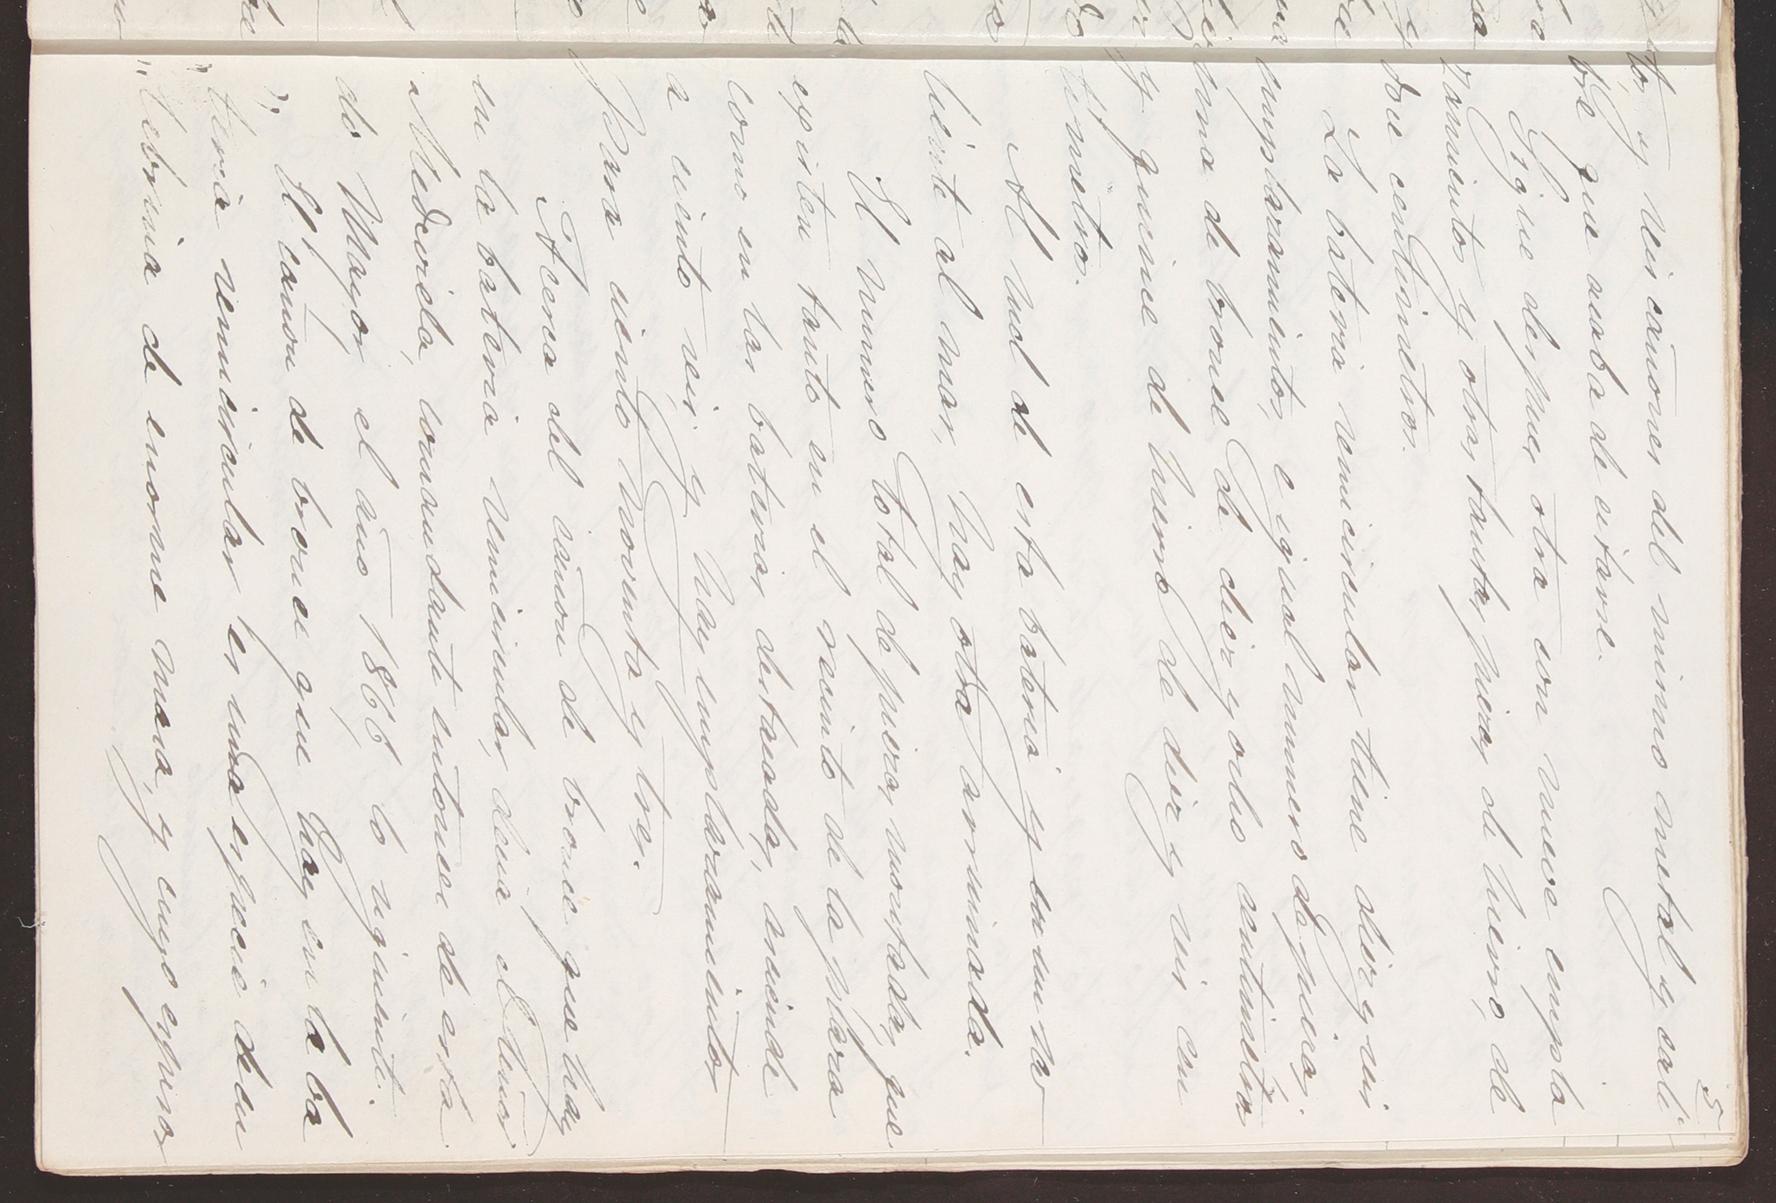 5
to, y seis cañones del mismo metal y cali
bre que acaba de citarse.
Sigue despues otra con nueve empla
zamientos y otras tantas piezas de hierro, de
doce centimetros.
La bateria semicircular, tiene diez y seis
emplazamientos, e igual numero de piezas;
una de bronce de diez y ocho centimetros
y quince de hierro de diez y seis cen
timetros.
Al sud de esta bateria y en un sa
liente al mar, hay otra arruinada.
El numero total de piezas montadas, que
existen tanto en el recinto de la plaza
como en las baterias destacadas, asciende
a ciento seis y hay emplazamientos
para ciento noventa y tres.
Acerca del cañon de bronce que hay
en la bateria semicircular, decia el Señor
Mederiela, comandante entonces de esta
do Mayor, el año 1866, lo siguiente.
"El cañon de bronce que hay en la ba
"teria semicircular es una especie de cu
"lebrina de enorme masa, y cuyo espesor